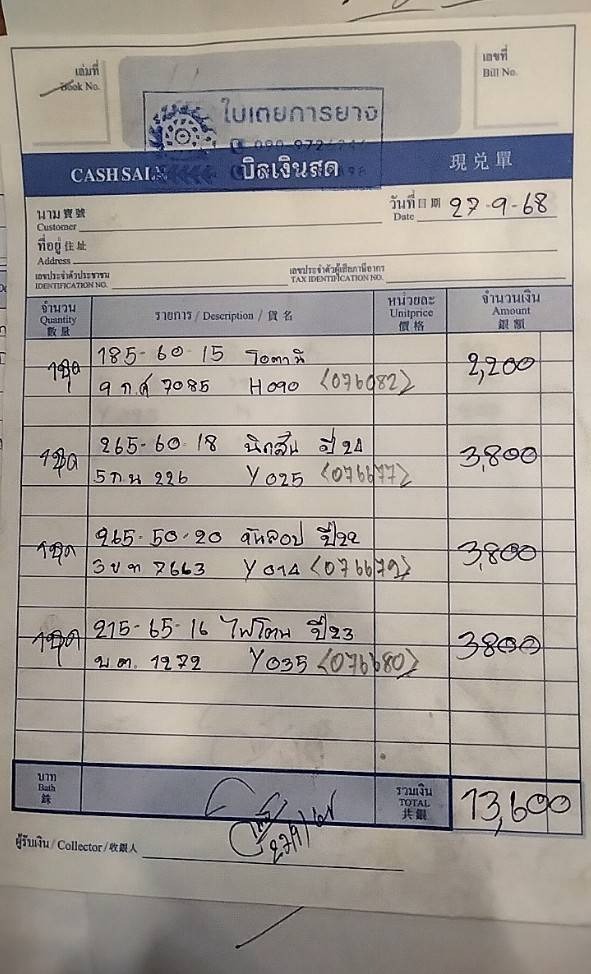 เล่มที่
Book No.
เลขที่
Bill No.
ใบเตยการยาง
CASH SALE บิลเงินสด 現兑單
นาม 寶號
Customer
วันที่ 日期
Date 27-9-68
ที่อยู่ 住址
Address
เลขประจำตัวประชาชน
IDENTIFICATION NO.
เลขประจำตัวผู้เสียภาษีอากร
TAX IDENTIFICATION NO.
จำนวน
Quantity
數量
รายการ / Description / 貨名
หน่วยละ
Unitprice
價格
จำนวนเงิน
Amount
銀額
1ชุด 185-60-15 โอตานิ 2,200
9กศ 7085 H090 <076082>
1ชุด 265-60-18 ปี 24 3,800
5กน 226 Y025 <076677>
1ชุด 265-50-20 ดันลอป ปี22 3,800
3ขท 7663 Y014 <076679>
1ชุด 215-65-16 ปี23 3800
บต. 1272 Y035 <076680>
บาท
Bath
銖
รวมเงิน
TOTAL
共銀
13,600
ผู้รับเงิน / Collector / 收銀人
27/9/68